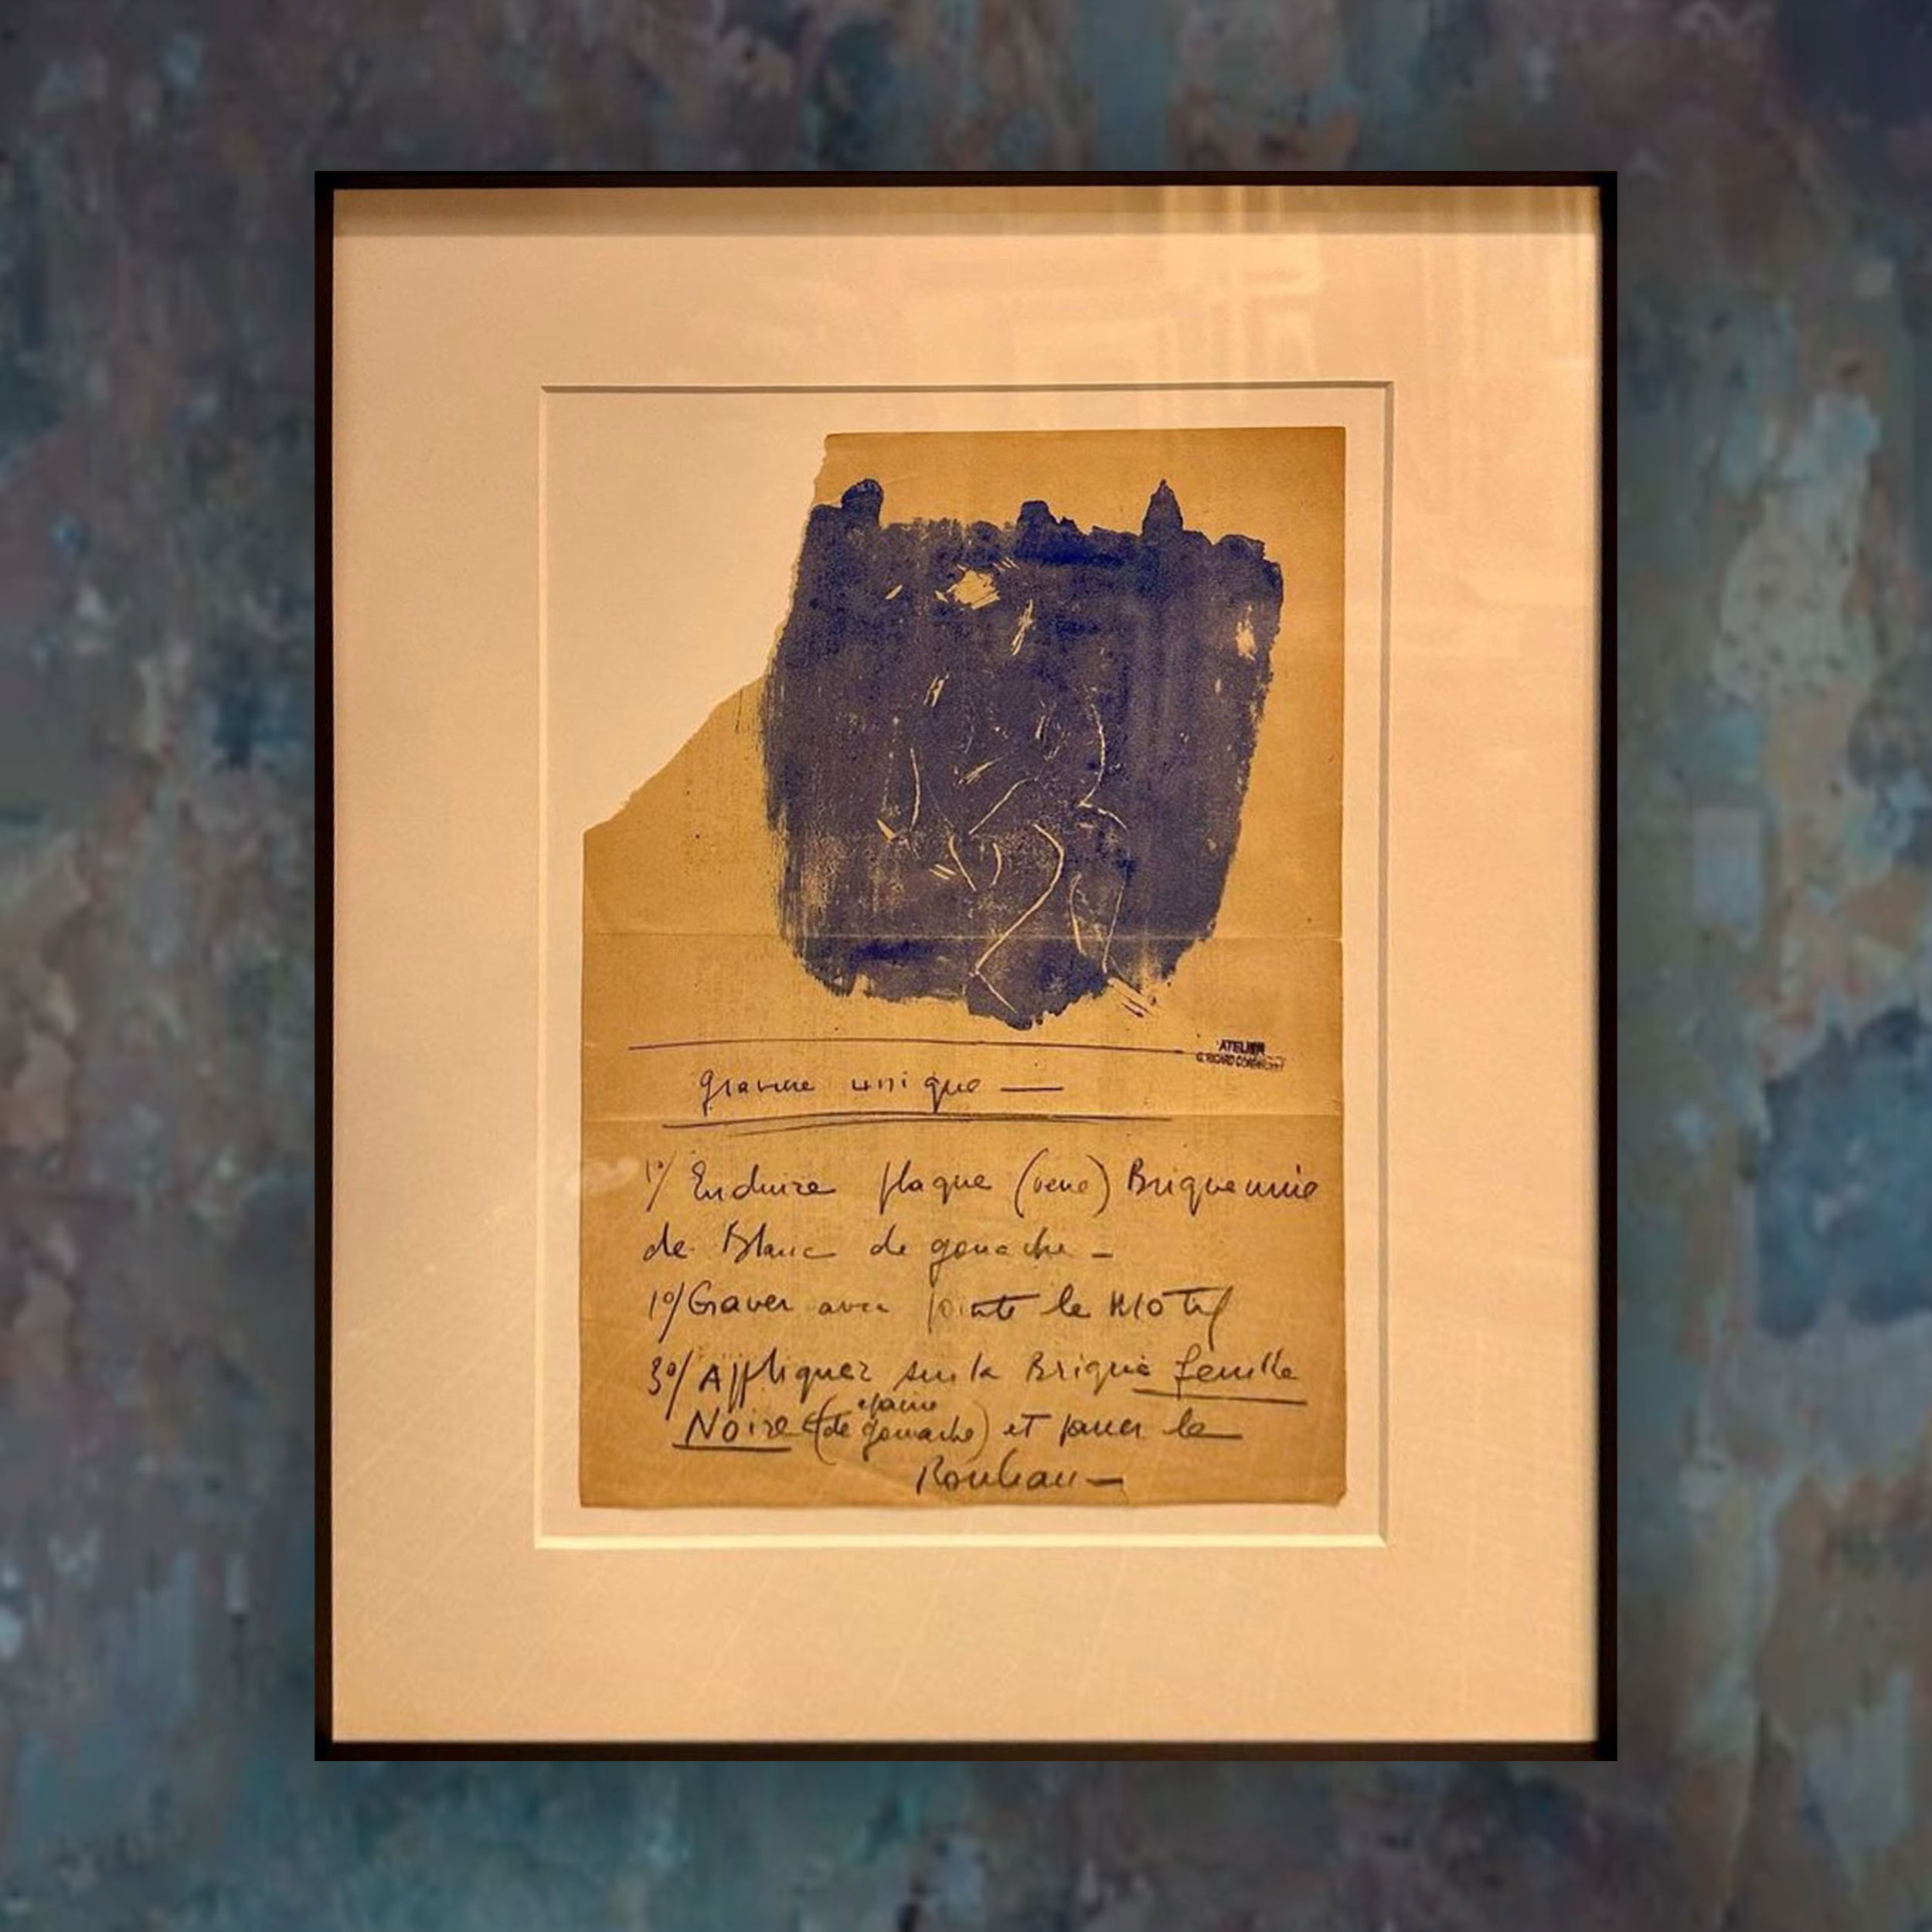 ATELIER
G. RICARD CORDINGLEY
gravure unique —
1°/ Enduire plaque (verre) Brique unie
de Blanc de gouache —
1°/ Graver avec pointe le MOTif
3°/ Appliquer sur la Brique feuille
Noire (de gouache) eT passer le
Rouleau —